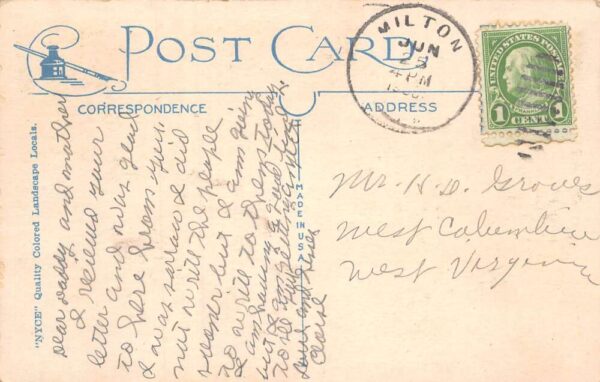 POST CARD
CORRESPONDENCE
ADDRESS
MILTON
JUN
25
4 PM
UNITED STATES POSTAGE
1 CENT 1
MADE IN U.S.A.
"NYCE" Quality Colored Landscape Locals.
Dear Daddy and mother
I recieved your
letter and was glad
to here from you.
I was sorry I did
not write the people
sooner but I am going
to write to them today
I am having a good time
but I am getting
love and kisses
Mr. H. D. Groves
West Columbia
West Virginia